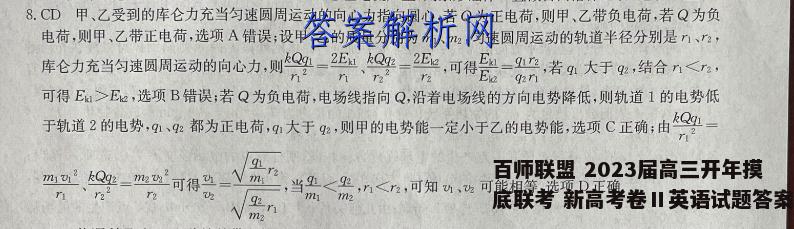 8. CD 甲、乙受到的库仑力充当匀速圆周运动的向心力指向圆心,若Q为正电荷,则甲、乙带负电荷,若Q为负
电荷,则甲、乙带正电荷,选项A错误;设甲、乙的质量分别为m₁、m₂,匀速圆周运动的轨道半径分别是r₁、r₂,
答案解析网
库仑力充当匀速圆周运动的向心力,则kQq₁/r₁²=2Eₖ₁/r₁、kQq₂/r₂²=2Eₖ₂/r₂,可得Eₖ₁/Eₖ₂=q₁r₂/q₂r₁,若q₁大于q₂,结合r₁<r₂,
可得Eₖ₁>Eₖ₂,选项B错误;若Q为负电荷,电场线指向Q,沿着电场线的方向电势降低,则轨道1的电势低
于轨道2的电势,q₁、q₂都为正电荷,q₁大于q₂,则甲的电势能一定小于乙的电势能,选项C正确;由kQq₁/r₁²=
m₁v₁²/r₁、kQq₂/r₂²=m₂v₂²/r₂可得v₁/v₂=√(q₁/m₁ r₂)/√(q₂/m₂ r₁),当q₁/m₁<q₂/m₂,r₁<r₂,可知v₁、v₂可能相等,选项D正确
百师联盟 2023届高三开年摸
底联考 新高考卷Ⅱ英语试题答案